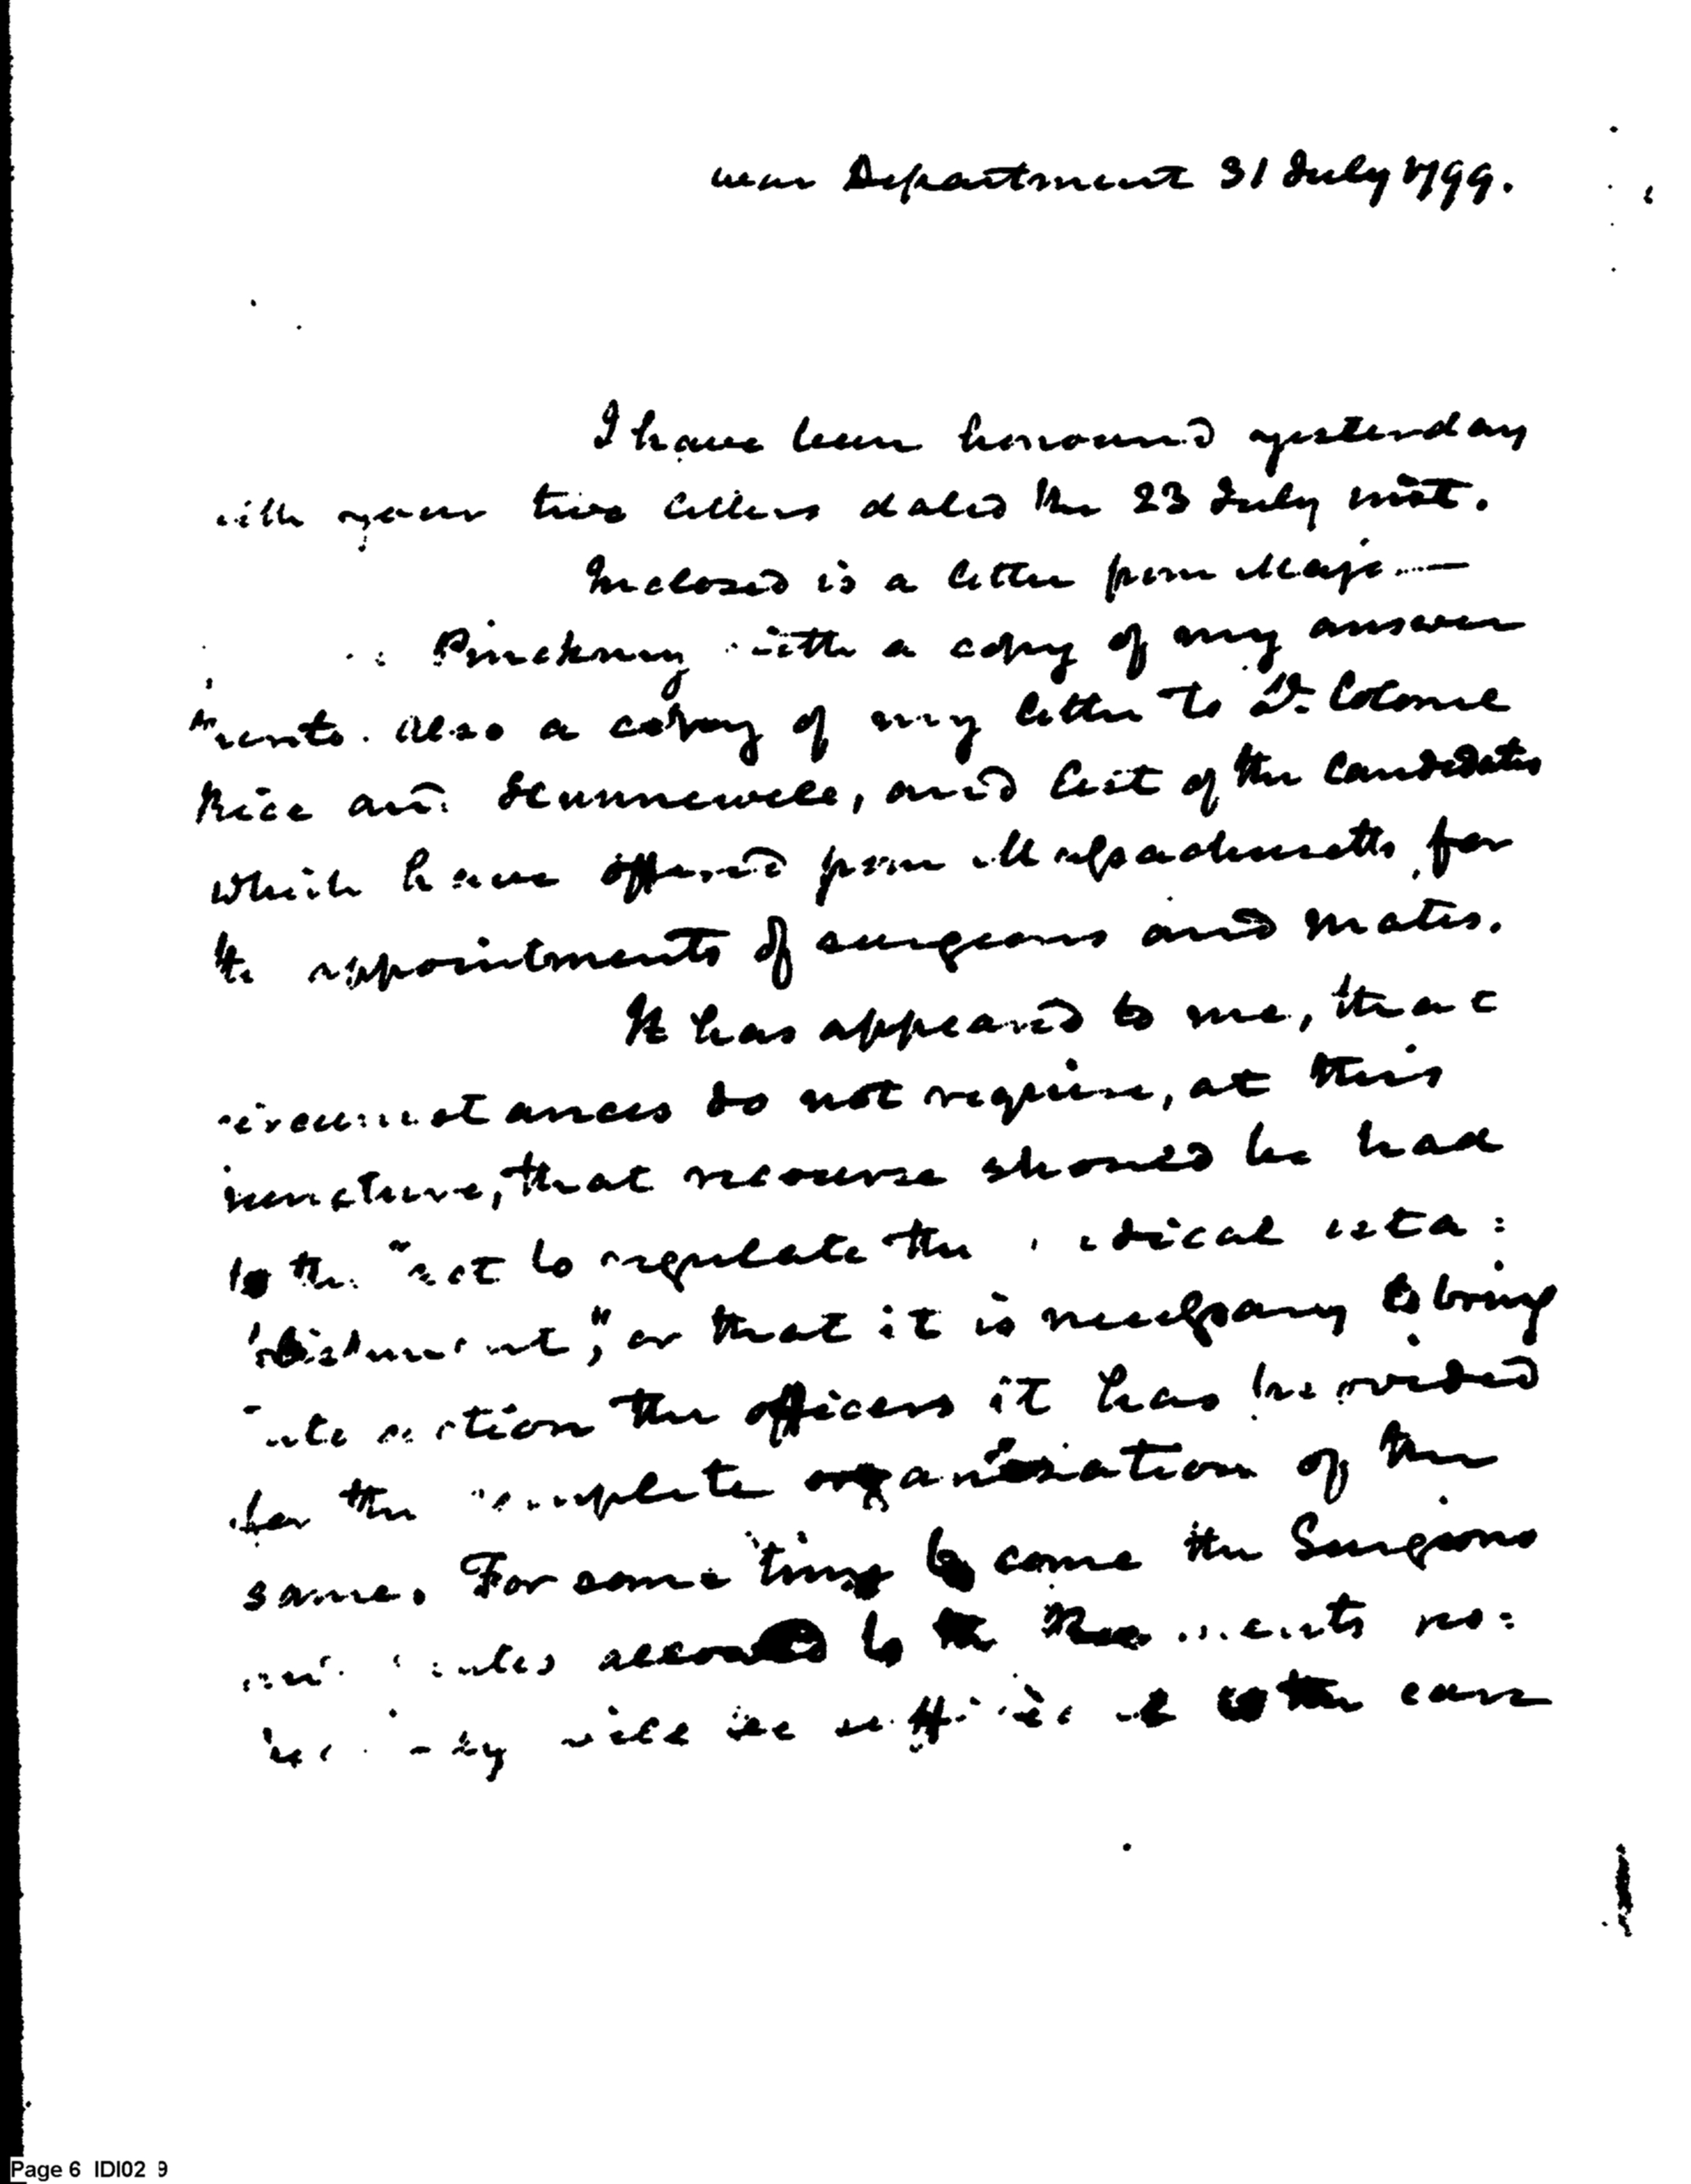 War Department 31 July 1799.
I have been honoured yesterday
with your two letters dated the 23 July inst.
Inclosed is a letter from Majr.
Pinckney with a copy of my answer
Also a copy of my letter to Lt. Colonel
Rice and Hunnewell, and list of the Candidates
which have offered from Massachusetts for
the appointments of surgeons and mates.
It has appeared to me, that
circumstances do not require, at this
juncture, that recourse should be had
to the "act to regulate the medical esta=
blishment," or that it is necessary to bring
into action the officers it has provided
for the complete organization of the
same. For some time to come the Surgeons
and mates allowed to the Regiments re=
will be sufficient to the care
Page 6 IDI02 9